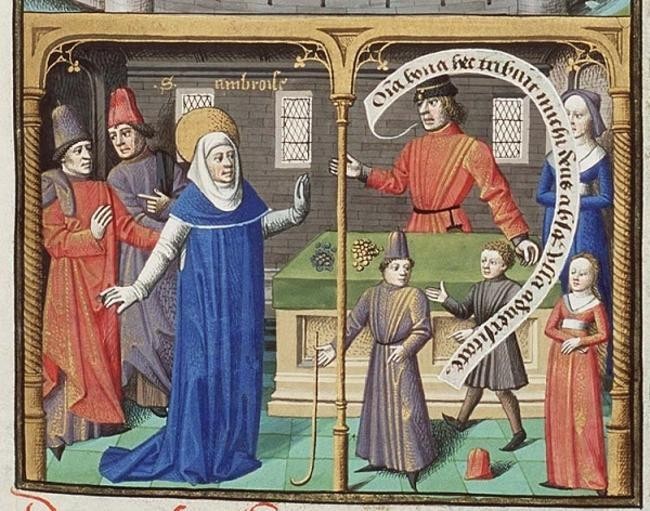 .S. ambroise
Oīa bona hec tribuit michi deus absqȝ vlla aduersitate.